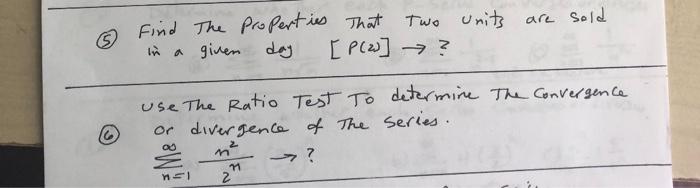 ⑤ Find The Properties That Two Units are Sold
in a given day [P(2)] → ?
⑥ Use The Ratio Test To determine The Convergence
or divergence of The Series.
∞
∑ n² / 2ⁿ → ?
n=1